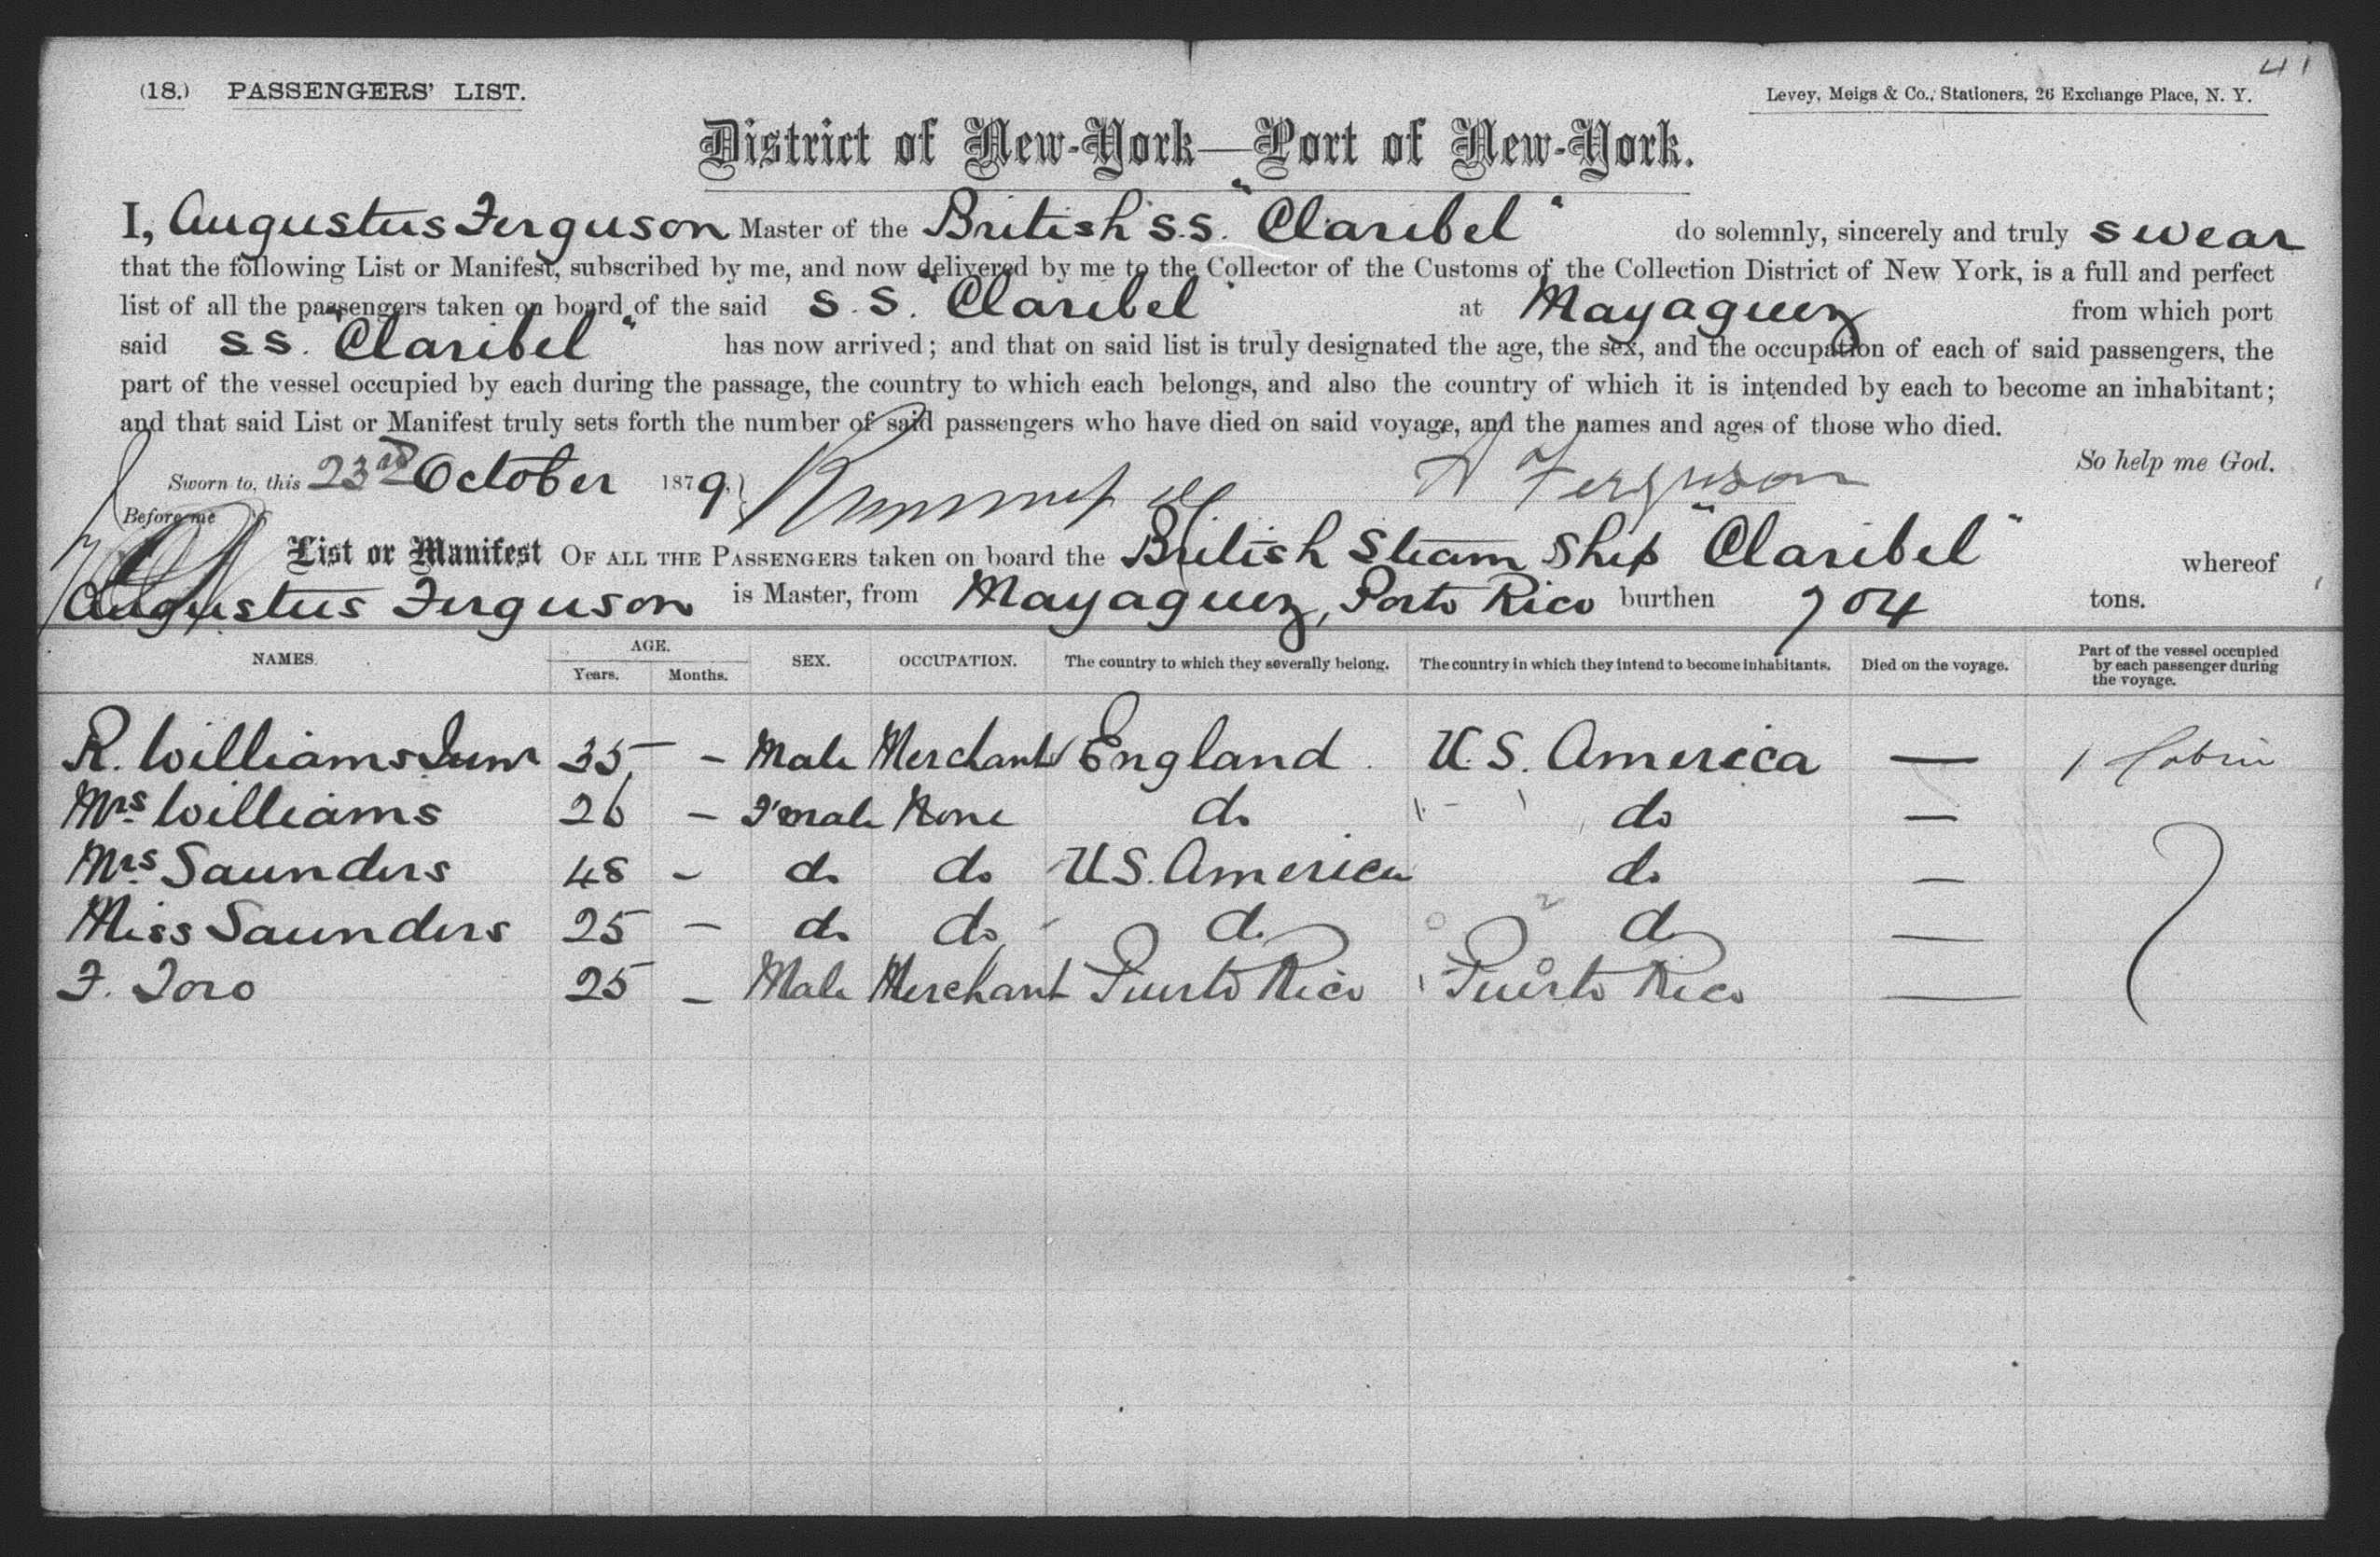 41
(18.) PASSENGERS' LIST. Levey, Meigs & Co., Stationers, 26 Exchange Place, N. Y.
District of New-York—Port of New-York.
I, Augustus Ferguson Master of the British S.S. "Claribel" do solemnly, sincerely and truly swear
that the following List or Manifest, subscribed by me, and now delivered by me to the Collector of the Customs of the Collection District of New York, is a full and perfect
list of all the passengers taken on board of the said S.S. "Claribel" at Mayaguez from which port
said S.S. "Claribel" has now arrived; and that on said list is truly designated the age, the sex, and the occupation of each of said passengers, the
part of the vessel occupied by each during the passage, the country to which each belongs, and also the country of which it is intended by each to become an inhabitant;
and that said List or Manifest truly sets forth the number of said passengers who have died on said voyage, and the names and ages of those who died.
So help me God.
Sworn to, this 23rd October 1879, A Ferguson
Before me
List or Manifest OF ALL THE PASSENGERS taken on board the British Steam Ship "Claribel" whereof
Augustus Ferguson is Master, from Mayaguez, Porto Rico burthen 704 tons.
NAMES. AGE. Years. Months. SEX. OCCUPATION. The country to which they severally belong. The country in which they intend to become inhabitants. Died on the voyage. Part of the vessel occupied by each passenger during the voyage.
R. Williams Junr 35 - Male Merchant England U.S. America — 1 Cabin
Mrs. Williams 26 - F'male None do do —
Mrs. Saunders 48 - do do U.S. America do —
Miss Saunders 25 - do do do do —
F. Toro 25 - Male Merchant Puerto Rico Puerto Rico —